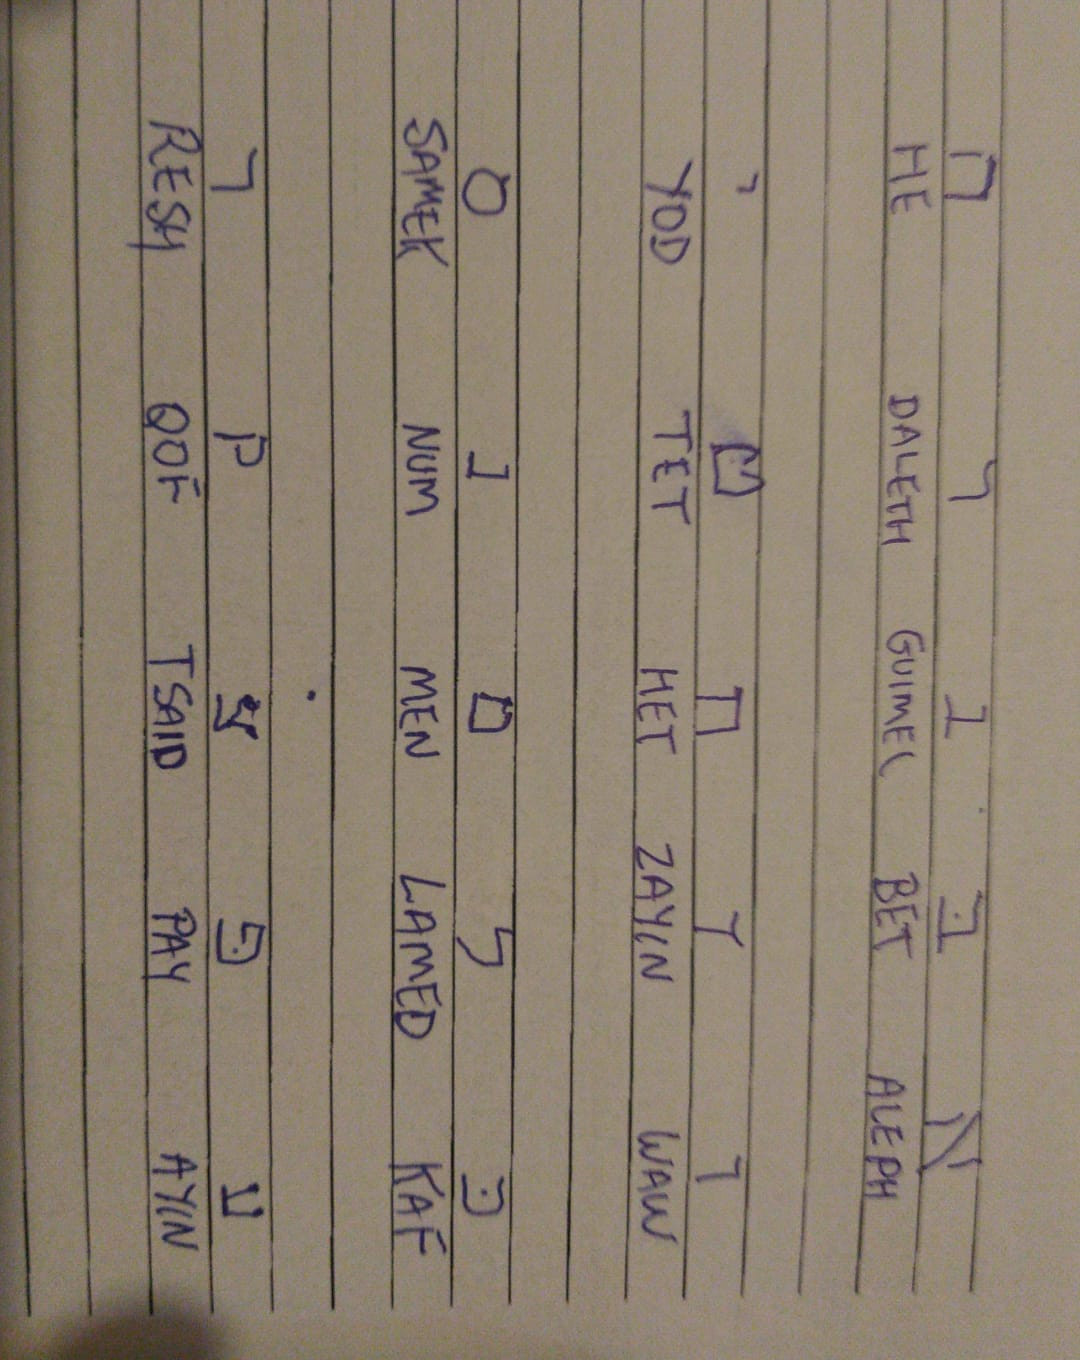 א ב ג ד ה
HE DALETH GUIMEL BET ALEPH
ו ז ח ט י
YOD TET HET ZAYIN WAW
כ ל מ נ ס
SAMEK NUM MEN LAMED KAF
ע פ צ ק ר
RESH QOF TSAID PAY AYIN